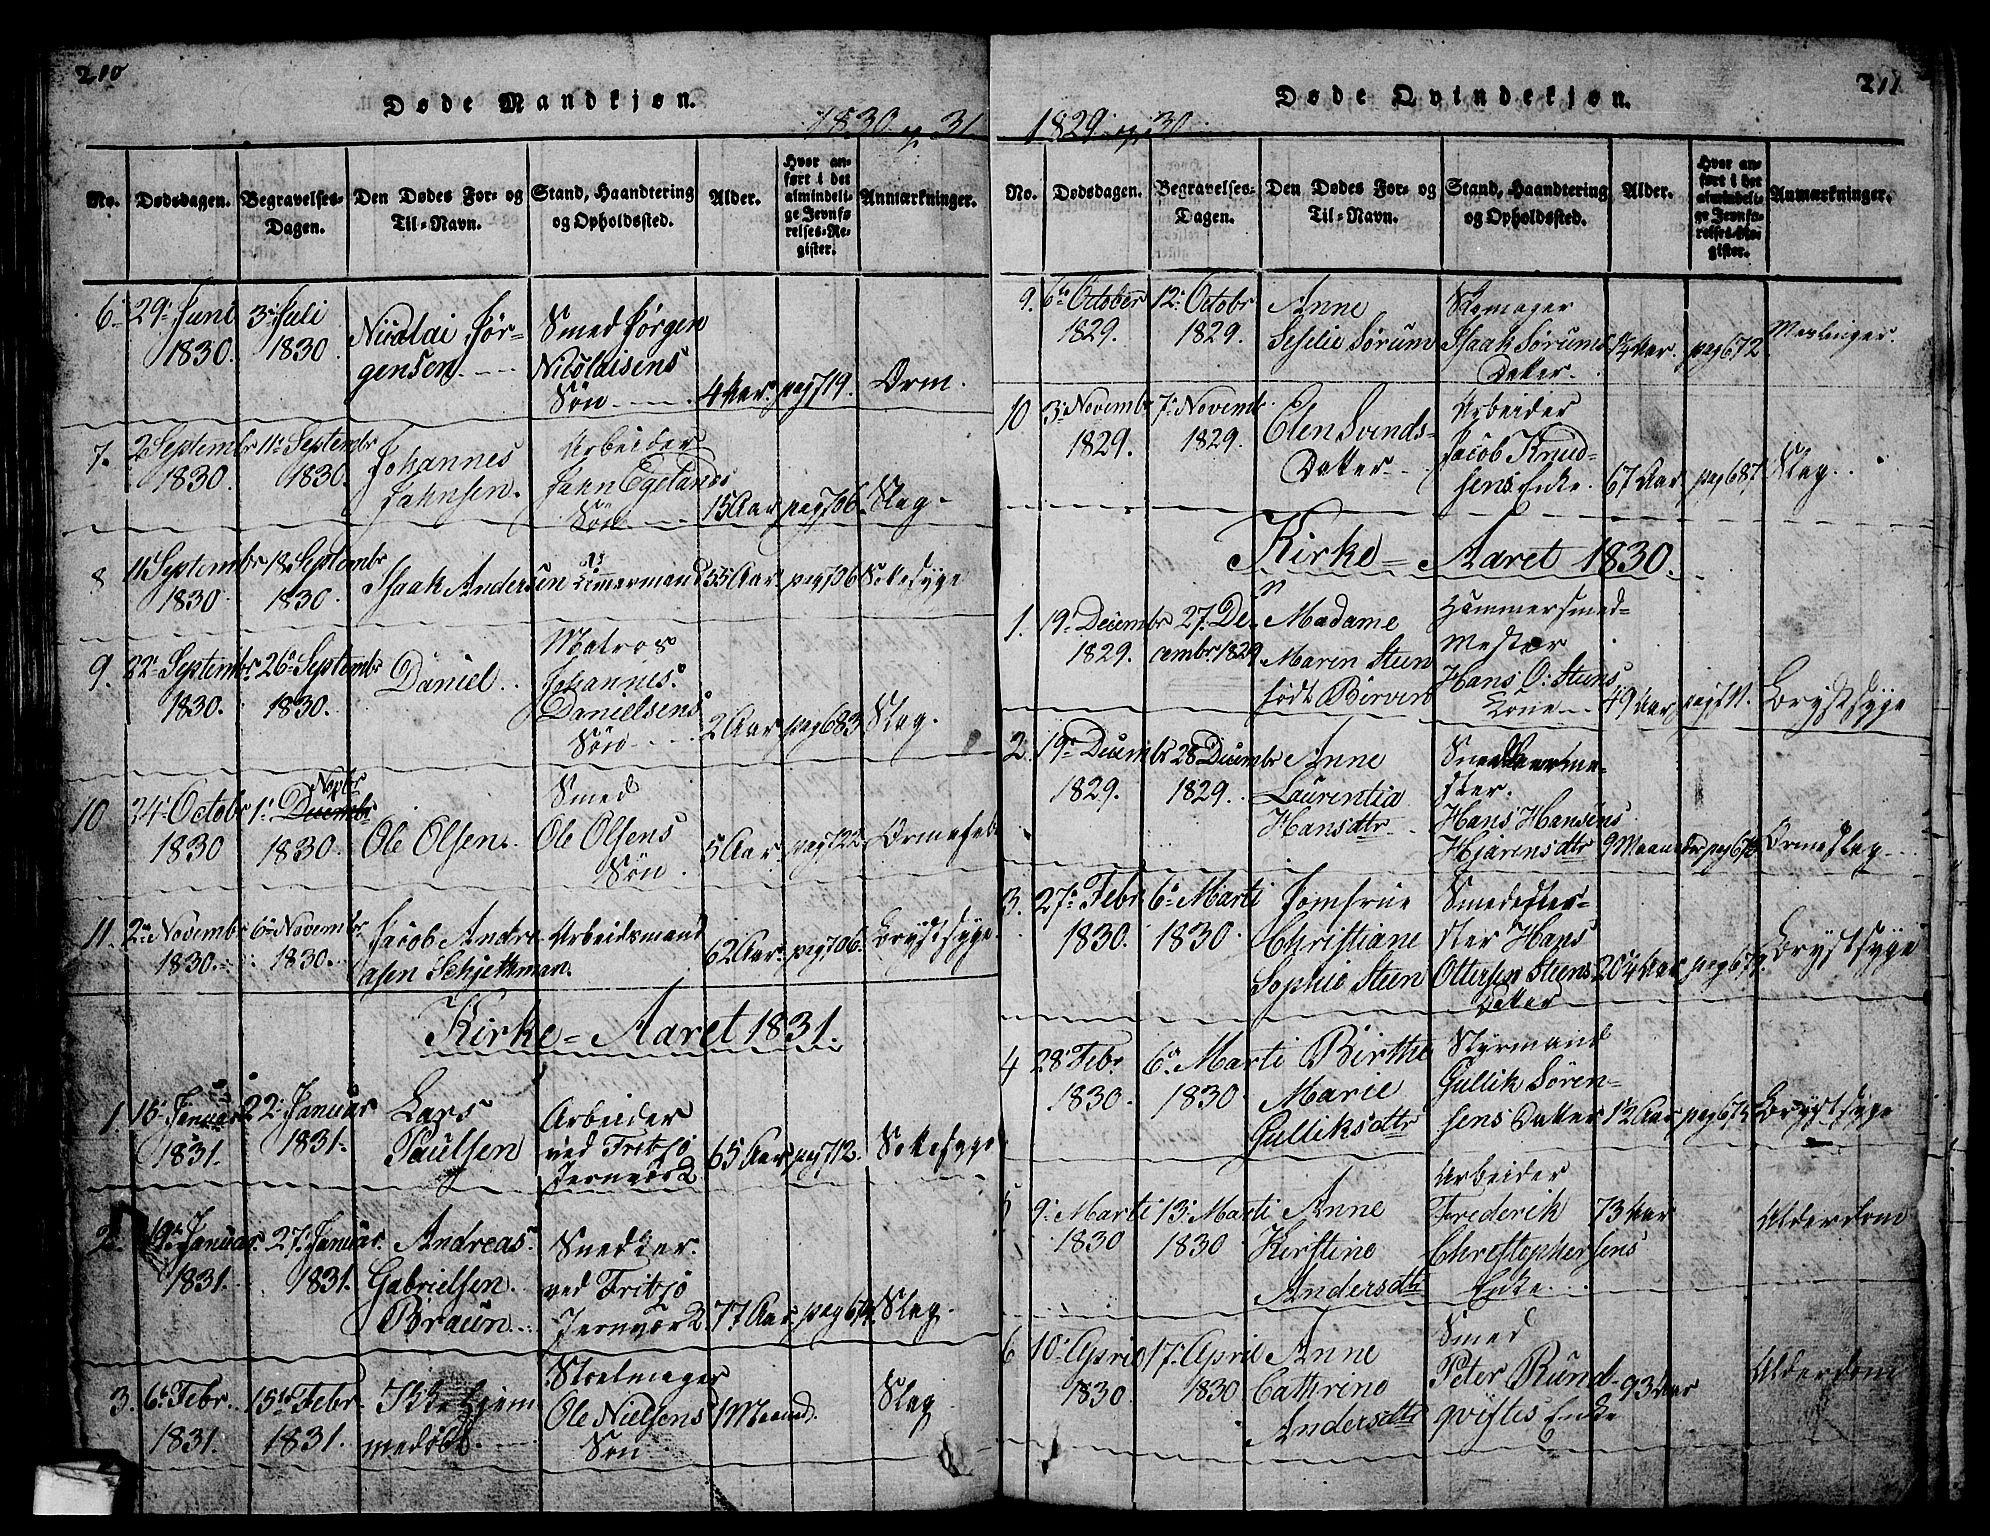 210
Døde Mandkjøn.
1830 og 31
No.
Dødsdagen.
Begravelses-
Dagen.
Den Dødes For- og
Til-Navn.
Stand, Haandtering
og Opholdssted.
Alder.
Hvor an-
ført i det
almindeli-
ge Jevnfø-
relses-Re-
gister.
Anmærkninger.
6. 29. Juni 1830. 3. Juli 1830. Nicolai Jør-
gensen. Smed Jørgen
Nicolaisens
Søn 4 Aar. pag 719. Orm.
7. 2 Septembr 1830. 11. Septembr 1830. Johannes
Jahnsen. Arbeider
Jahn Egelands
Søn 15 Aar pag 706. Slag.
8 11 Septembr 1830. 18. Septembr 1830. Isaak Andersen Tømmermand 55 Aar. pag 706. Sotesyge
9. 22. Septembr. 1830. 26. Septembr 1830. Daniel. Matros
Johannes
Danielsens
Søn 2 Aar pag 683. Slag.
10 24. Octobr 1830 1. Novbr 1830. Ole Olsen. Smed
Ole Olsens
Søn. 5 Aar. pag 722.
11. 2. Novembr 1830. 6. Novembr. 1830. Jacob Andre
asen Schjethman. Arbeidsmand 62 Aar. pag 706. Brystsyge
Kirke-Aaret 1831.
1. 15. Januar 1831. 22. Januar 1831. Lars
Paulsen Arbeider
ved Fritzø
Jernvær 65 Aar pag 712. Sotesyge
2. 19. Januar. 1831. 27. Januar. 1831. Andreas
Gabrielsen
Braun. Snedker.
ved Fritzø
Jernvær 77 Aar. Slag.
3. 6. Febr. 1831. 15. Febr 1831. Ikke hjem
medøbt. Stolmager
Ole Nielsens
Søn 1 Maaned. Slag
211
Døde Qvindekjøn.
1829 og 30
No.
Dødsdagen.
Begravelses-
Dagen.
Den Dødes For- og
Til-Navn.
Stand, Haandtering
og Opholdssted.
Alder.
Hvor an-
ført i det
almindeli-
ge Jevnfø-
relses-Re-
gister.
Anmærkninger.
9. 6. October 1829. 12. Octobr 1829. Anne
Seselie Sørum Skomager
Isaak Sørums
Datter. pag 672. Meslinger.
10 3. Novembr 1829. 7. Novembr. 1829. Elen Svends-
Datter. Arbeider
Jacob Knud-
sens Enke. 67 Aar. pag 687. Slag.
Kirke-Aaret 1830.
1. 19. Decembr 1829. 27. De-
cembr 1829. Madame
Maren Steen
født Birven Hammersmed-
Mester
Hans O. Steens
Kone 49 Aar Brystsyge
2. 19. Decembr 1829. 28 Decembr 1829. Anne
Laurentia
Hansdtr.
ster.
Hans Hansens
Hjarensdtr 9 Maaneder Ormeslag.
3. 27. Febr. 1830. 6. Marti 1830. Jomfrue
Christiane
Sophie Steen Smedester-
ster Hans
Ottersen Steens
Datter 20¼ Aar Brystsyge
4 28. Febr. 1830. 6. Marti 1830. Birthe
Marie
Gulliksdtr Styrmand
Gullik Søren-
sens Datter 12 Aar Brystsyge
5 9. Marti 1830 13. Marti 1830 Anne
Kirstine
Andersdtr Arbeider
Frederik
Christophersens
Enke. 73 Aar Alderdom
6 10. April 1830. 17. April 1830 Anne
Cathrine
Andersdtr Smed
Peter Rund-
qvistes Enke 93 Aar Alderdom